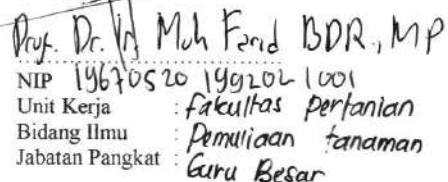 Prof. Dr. Ir Muh Farid BDR., MP
NIP 19670520 199202 1001
Unit Kerja : fakultas pertanian
Bidang Ilmu : Pemuliaan tanaman
Jabatan Pangkat : Guru Besar